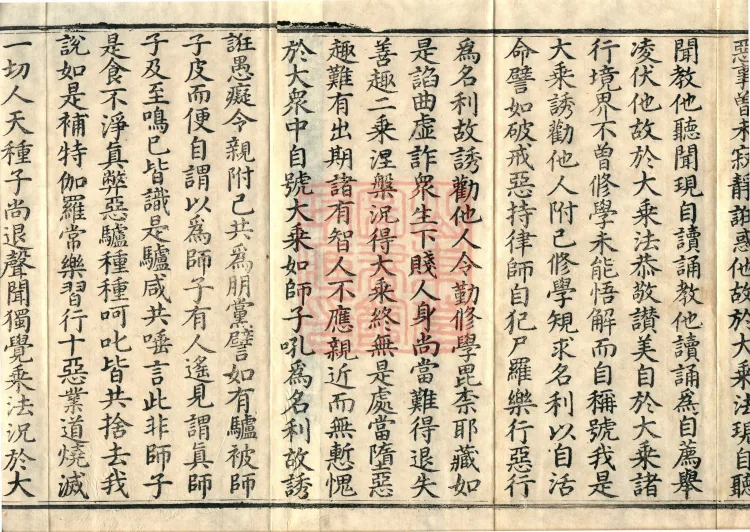 惡事曾未寂靜誑惑他故於大乘法現自聽
聞教他聽聞現自讀誦教他讀誦爲自薦舉
凌伏他故於大乘法恭敬讃美自於大乘諸
行境界不曾修學未能悟解而自稱號我是
大乘誘勸他人附己修學規求名利以自活
命譬如破戒惡持律師自犯尸羅樂行惡行
爲名利故誘勸他人令勤修學毘柰耶藏如
是諂曲虛詐衆生下賤人身尚當難得退失
善趣二乘涅槃況得大乘終無是處當墮惡
趣難有出期諸有智人不應親近而無慙愧
於大衆中自號大乘如師子吼爲名利故誘
誑愚癡令親附己共爲朋黨譬如有驢被師
子皮而便自謂以爲師子有人遙見謂真師
子及至鳴已皆識是驢咸共唾言此非師子
是食不淨真弊惡驢種種呵叱皆共捨去我
說如是補特伽羅常樂習行十惡業道燒滅
一切人天種子尚退聲聞獨覺乘法況於大